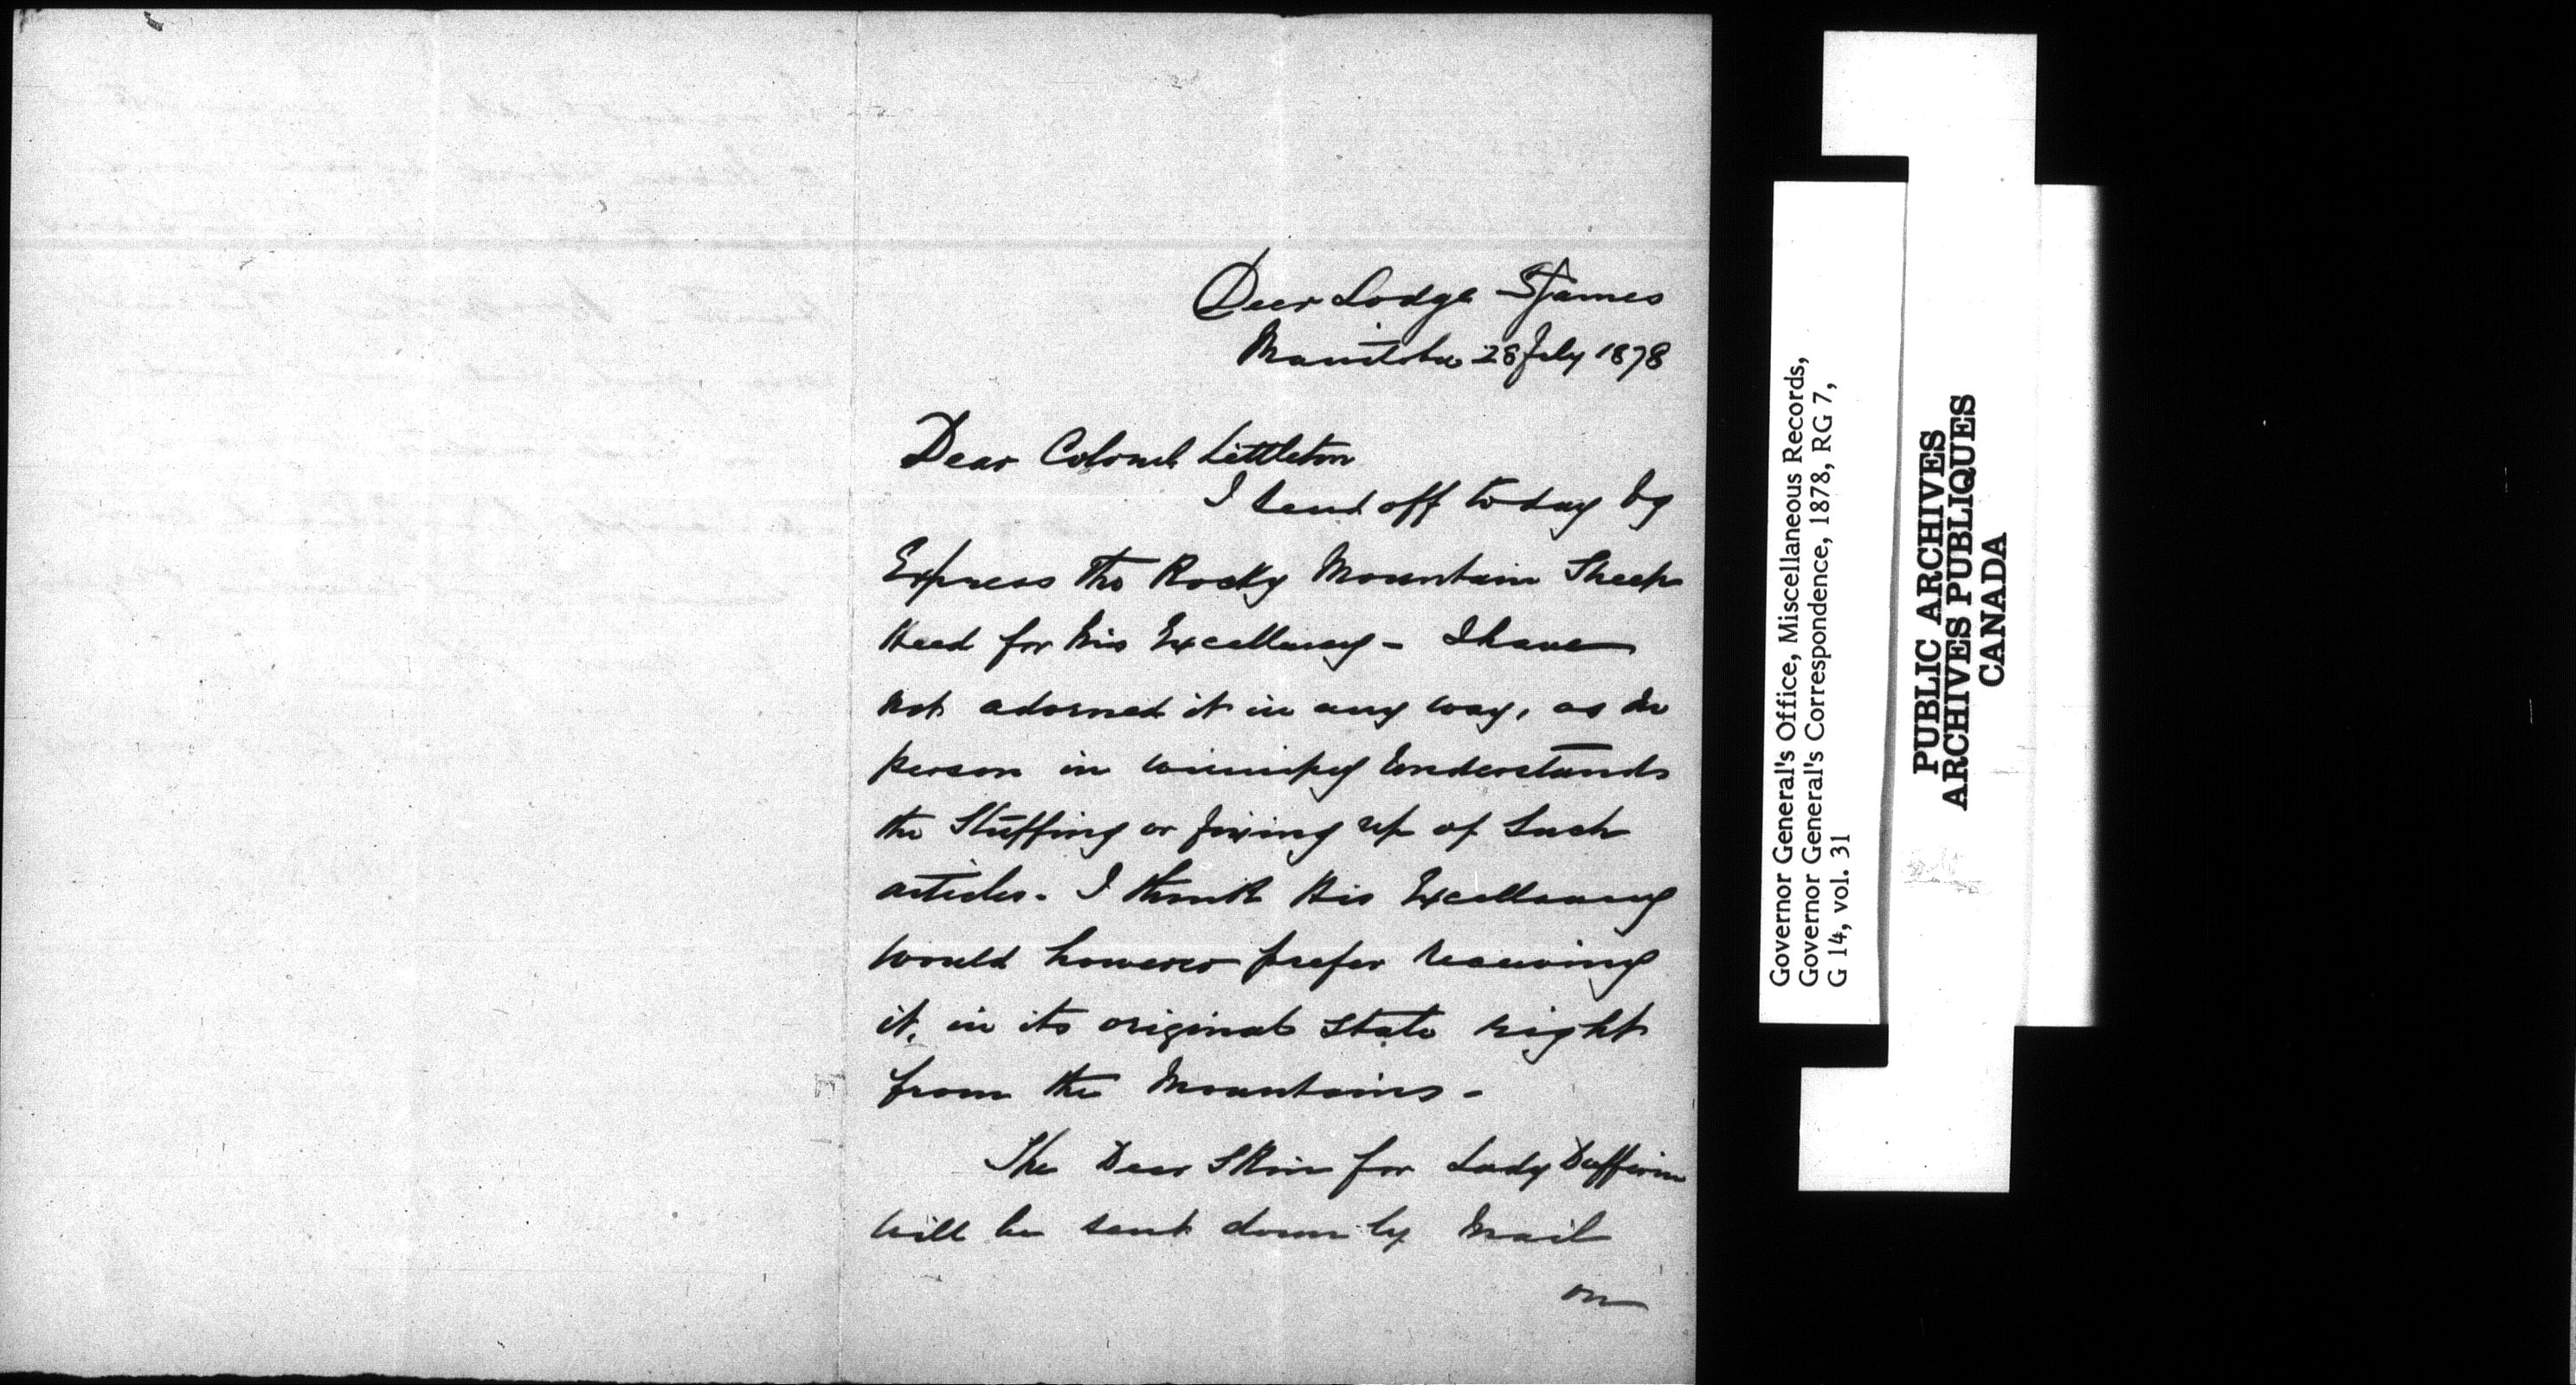 Deer Lodge St James
Manitoba 28 July 1878
Dear Colonel Littleton
I send off today by
Express the Rocky Mountain Sheep
Head for His Excellency - I have
not adorned it in any way, as no
person in Winnipeg Understands
the Stuffing or fixing up of Such
articles. I think His Excellency
would however prefer receiving
it, in its original state right
from the Mountains -
The Deer Skin for Lady Dufferin
will be sent down by Mail
on
Governor General's Office, Miscellaneous Records,
Governor General's Correspondence, 1878, RG 7,
G 14, vol. 31
PUBLIC ARCHIVES
ARCHIVES PUBLIQUES
CANADA